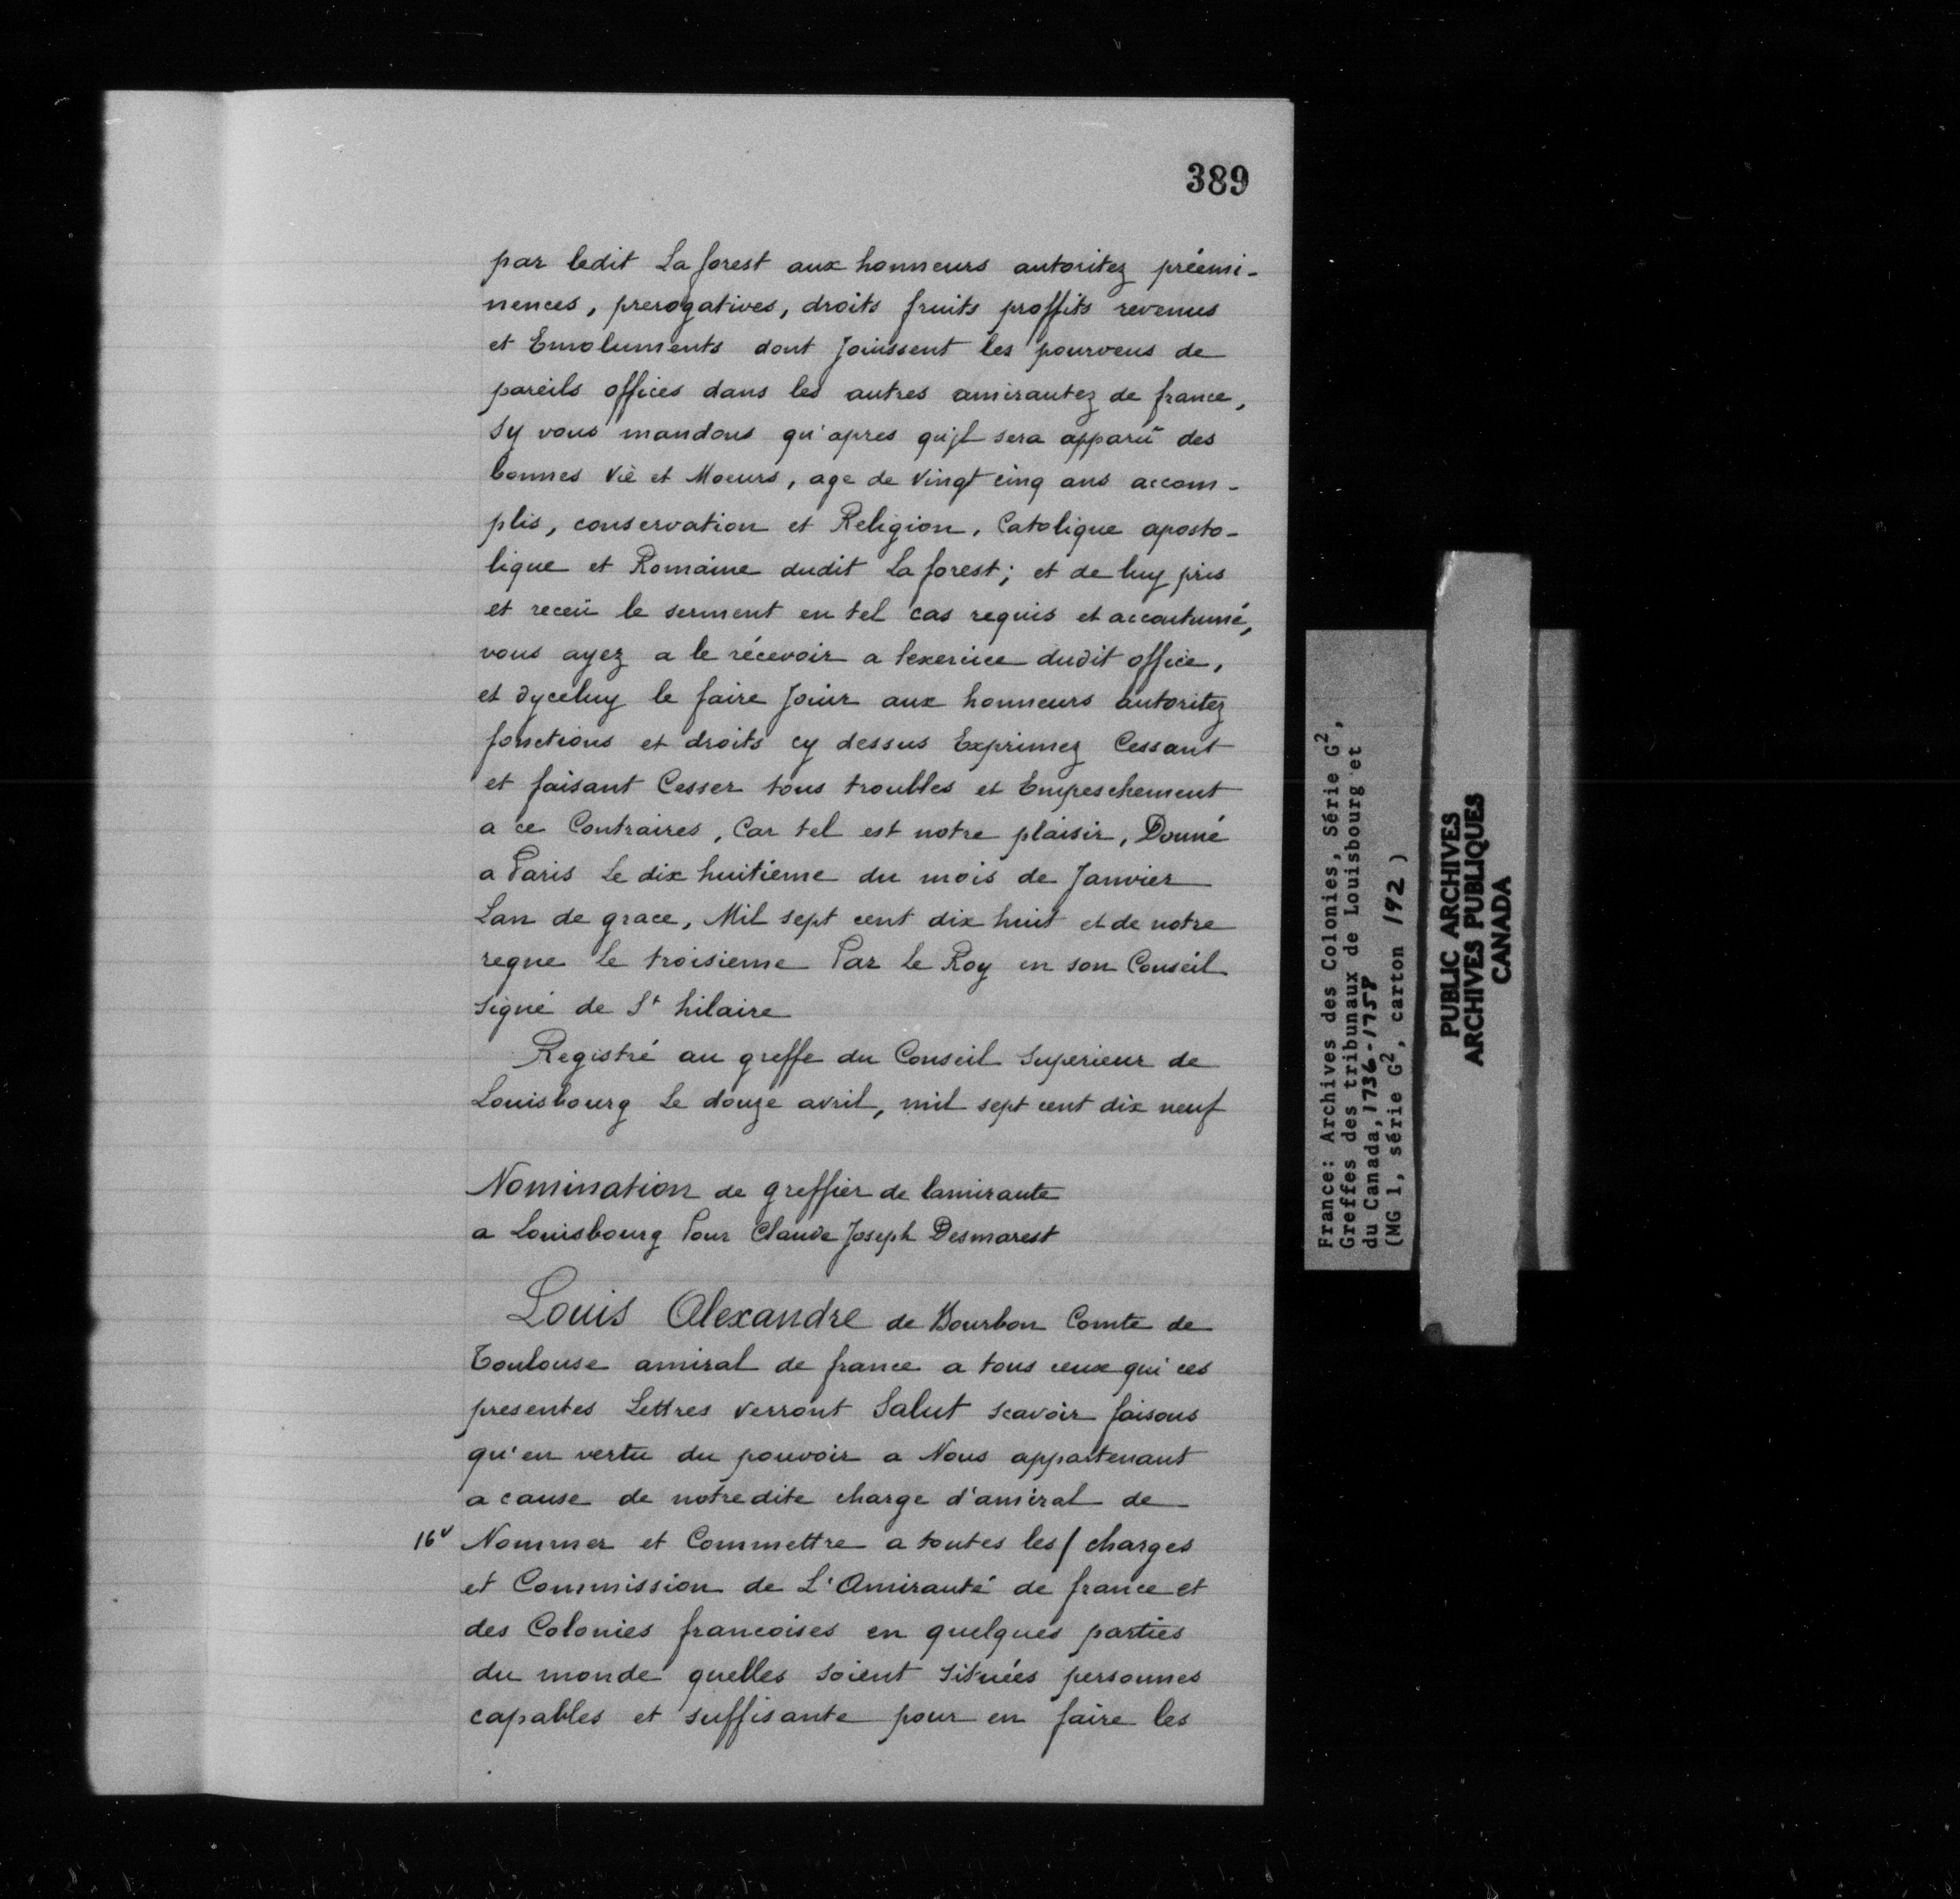 389
par ledit Laforest aux honneurs autoritez préemi-
nences, prerogatives, droits fruits proffits revenus
et Emoluments dont Jouissent les pourveus de
pareils offices dans les autres amirautez de france,
Sy vous mandons qu'apres qujl sera apparü des
bonnes Vie et Moeurs, age de Vingt cinq ans accom-
plis, conservation et Religion, Catolique aposto-
lique et Romaine dudit Laforest; et de luy pris
et receü le serment en tel cas requis et accoutumé,
vous ayez a le récevoir a lexercice dudit office,
et dyceluy le faire Jouir aux honneurs autoritez
fonctions et droits cy dessus Exprimez Cessant
et faisant Cesser tous troubles et Empeschement
a ce Contraires, Car tel est notre plaisir, Donné
a Paris Le dix huitieme du mois de Janvier
Lan de grace, Mil sept cent dix huit et de notre
regne le troisieme Par le Roy en son Conseil
signé de St hilaire
Registré au greffe du Conseil Superieur de
Louisbourg Le douze avril, mil sept cent dix neuf
Nomination de greffier de lamiraute
a Louisbourg Pour Claude Joseph Desmarest
Louis Alexandre de Bourbon Comte de
Toulouse amiral de france a tous ceux qui ces
presentes Lettres verront Salut scavoir faisons
qu'en vertu du pouvoir a Nous appartenant
a cause de notredite charge d'amiral de
16v Nommer et Commettre a toutes les/ charges
et Commission de L'Amirauté de france et
des Colonies francoises en quelques parties
du monde quelles soient situées personnes
capables et suffisante pour en faire les
France: Archives des Colonies, Série G2,
Greffes des tribunaux de Louisbourg et
du Canada, 1736-1758
(MG 1, série G2, carton 192)
PUBLIC ARCHIVES
ARCHIVES PUBLIQUES
CANADA